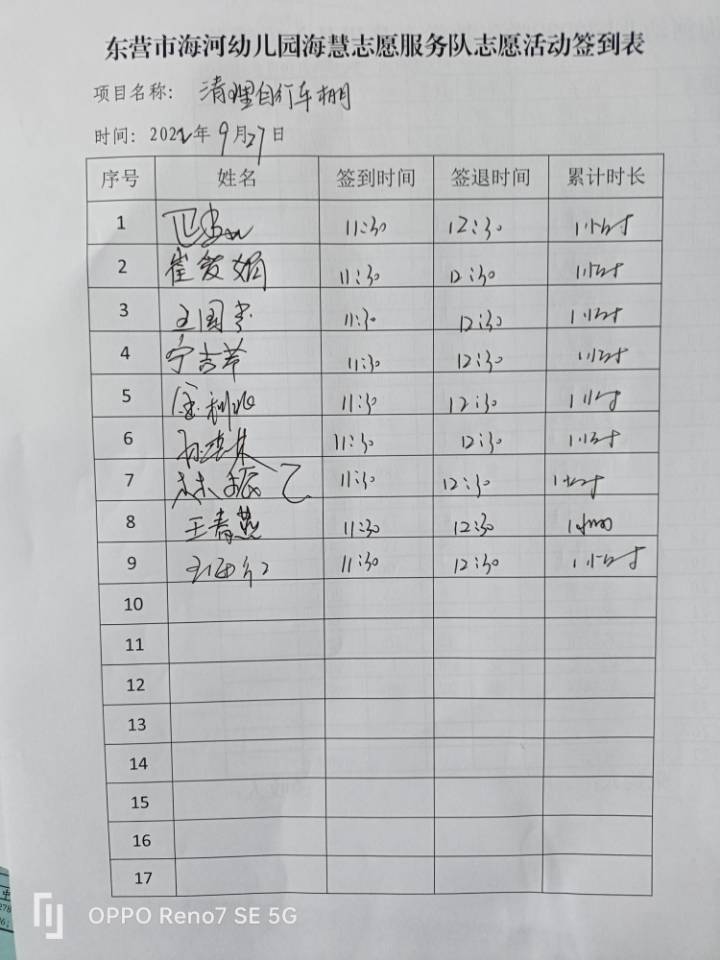 东营市海河幼儿园海慧志愿服务队志愿活动签到表
项目名称: 清理自行车棚
时间: 2022年9月27日
序号 姓名 签到时间 签退时间 累计时长
1 11:30 12:30 1小时
2 崔爱娟 11:30 12:30 1小时
3 王国秀 11:30 12:30 1小时
4 宁吉苹 11:30 12:30 1小时
5 11:30 12:30 1小时
6 11:30 12:30 1小时
7 林振 11:30 12:30 1小时
8 王春燕 11:30 12:30 1小时
9 11:30 12:30 1小时
10
11
12
13
14
15
16
17
OPPO Reno7 SE 5G